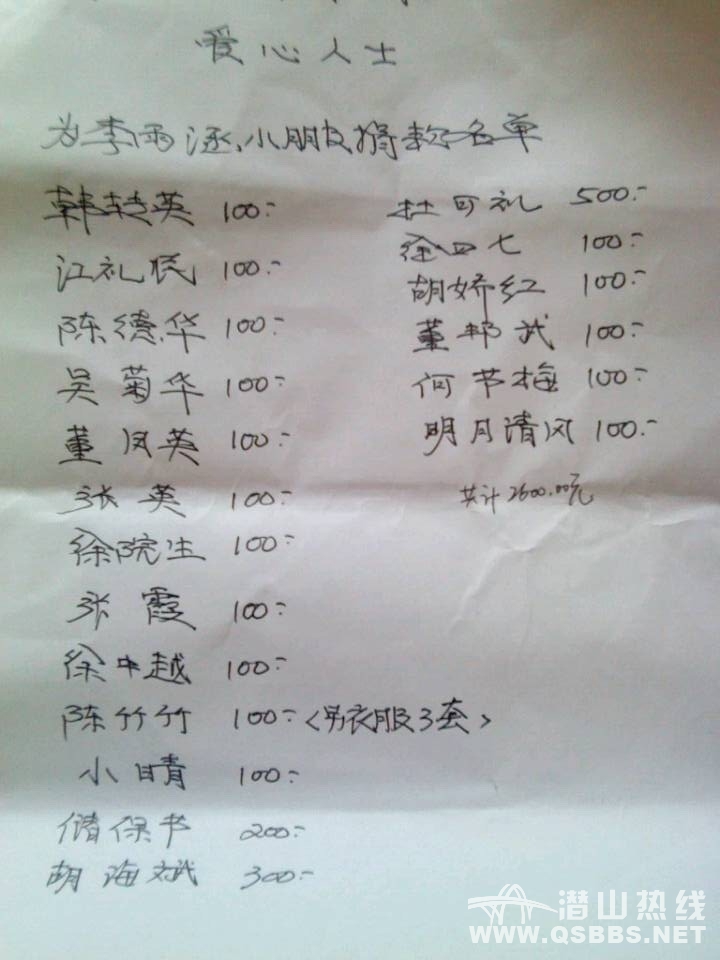 爱心人士
为李雨涵小朋友捐款名单
韩转英 100:-
江礼民 100:-
陈德华 100:-
吴菊华 100:-
董凤英 100:-
张英 100:-
徐院生 100:-
张霞 100:-
徐中越 100:-
陈竹竹 100:-〈另衣服3套〉
小晴 100:-
储保书 200:-
胡海斌 300:-
杜可礼 500:-
徐四七 100:-
胡娇红 100:-
董邦武 100:-
何节梅 100:-
明月清风 100:-
共计2600.00元
潜山热线
WWW.QSBBS.NET